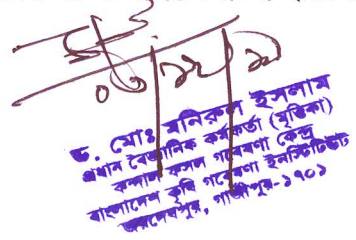 ড. মোঃ মনিরুল ইসলাম
প্রধান বৈজ্ঞানিক কর্মকর্তা (মৃত্তিকা)
কন্দাল ফসল গবেষণা কেন্দ্র
বাংলাদেশ কৃষি গবেষণা ইনস্টিটিউট
জয়দেবপুর, গাজীপুর-১৭০১